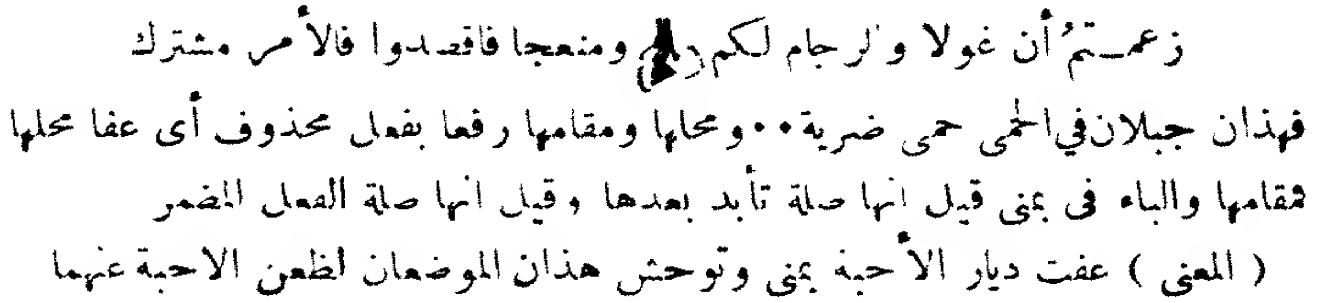 زعمـتمُ أن غولا والرجام لكم ومنعجا فاقصدوا فالأمر مشترك
فهذان جبلان في الحمى حمى ضرية٠٠ومحلها ومقامها رفعا بفعل محذوف أى عفا محلها
فمقامها والباء فى بمنى قيل انها صلة تأبد بعدها وقيل انها صلة الفعل المضمر
( المعنى ) عفت ديار الأحبة بمنى وتوحش هذان الموضعان لظعن الاحبة عنهما